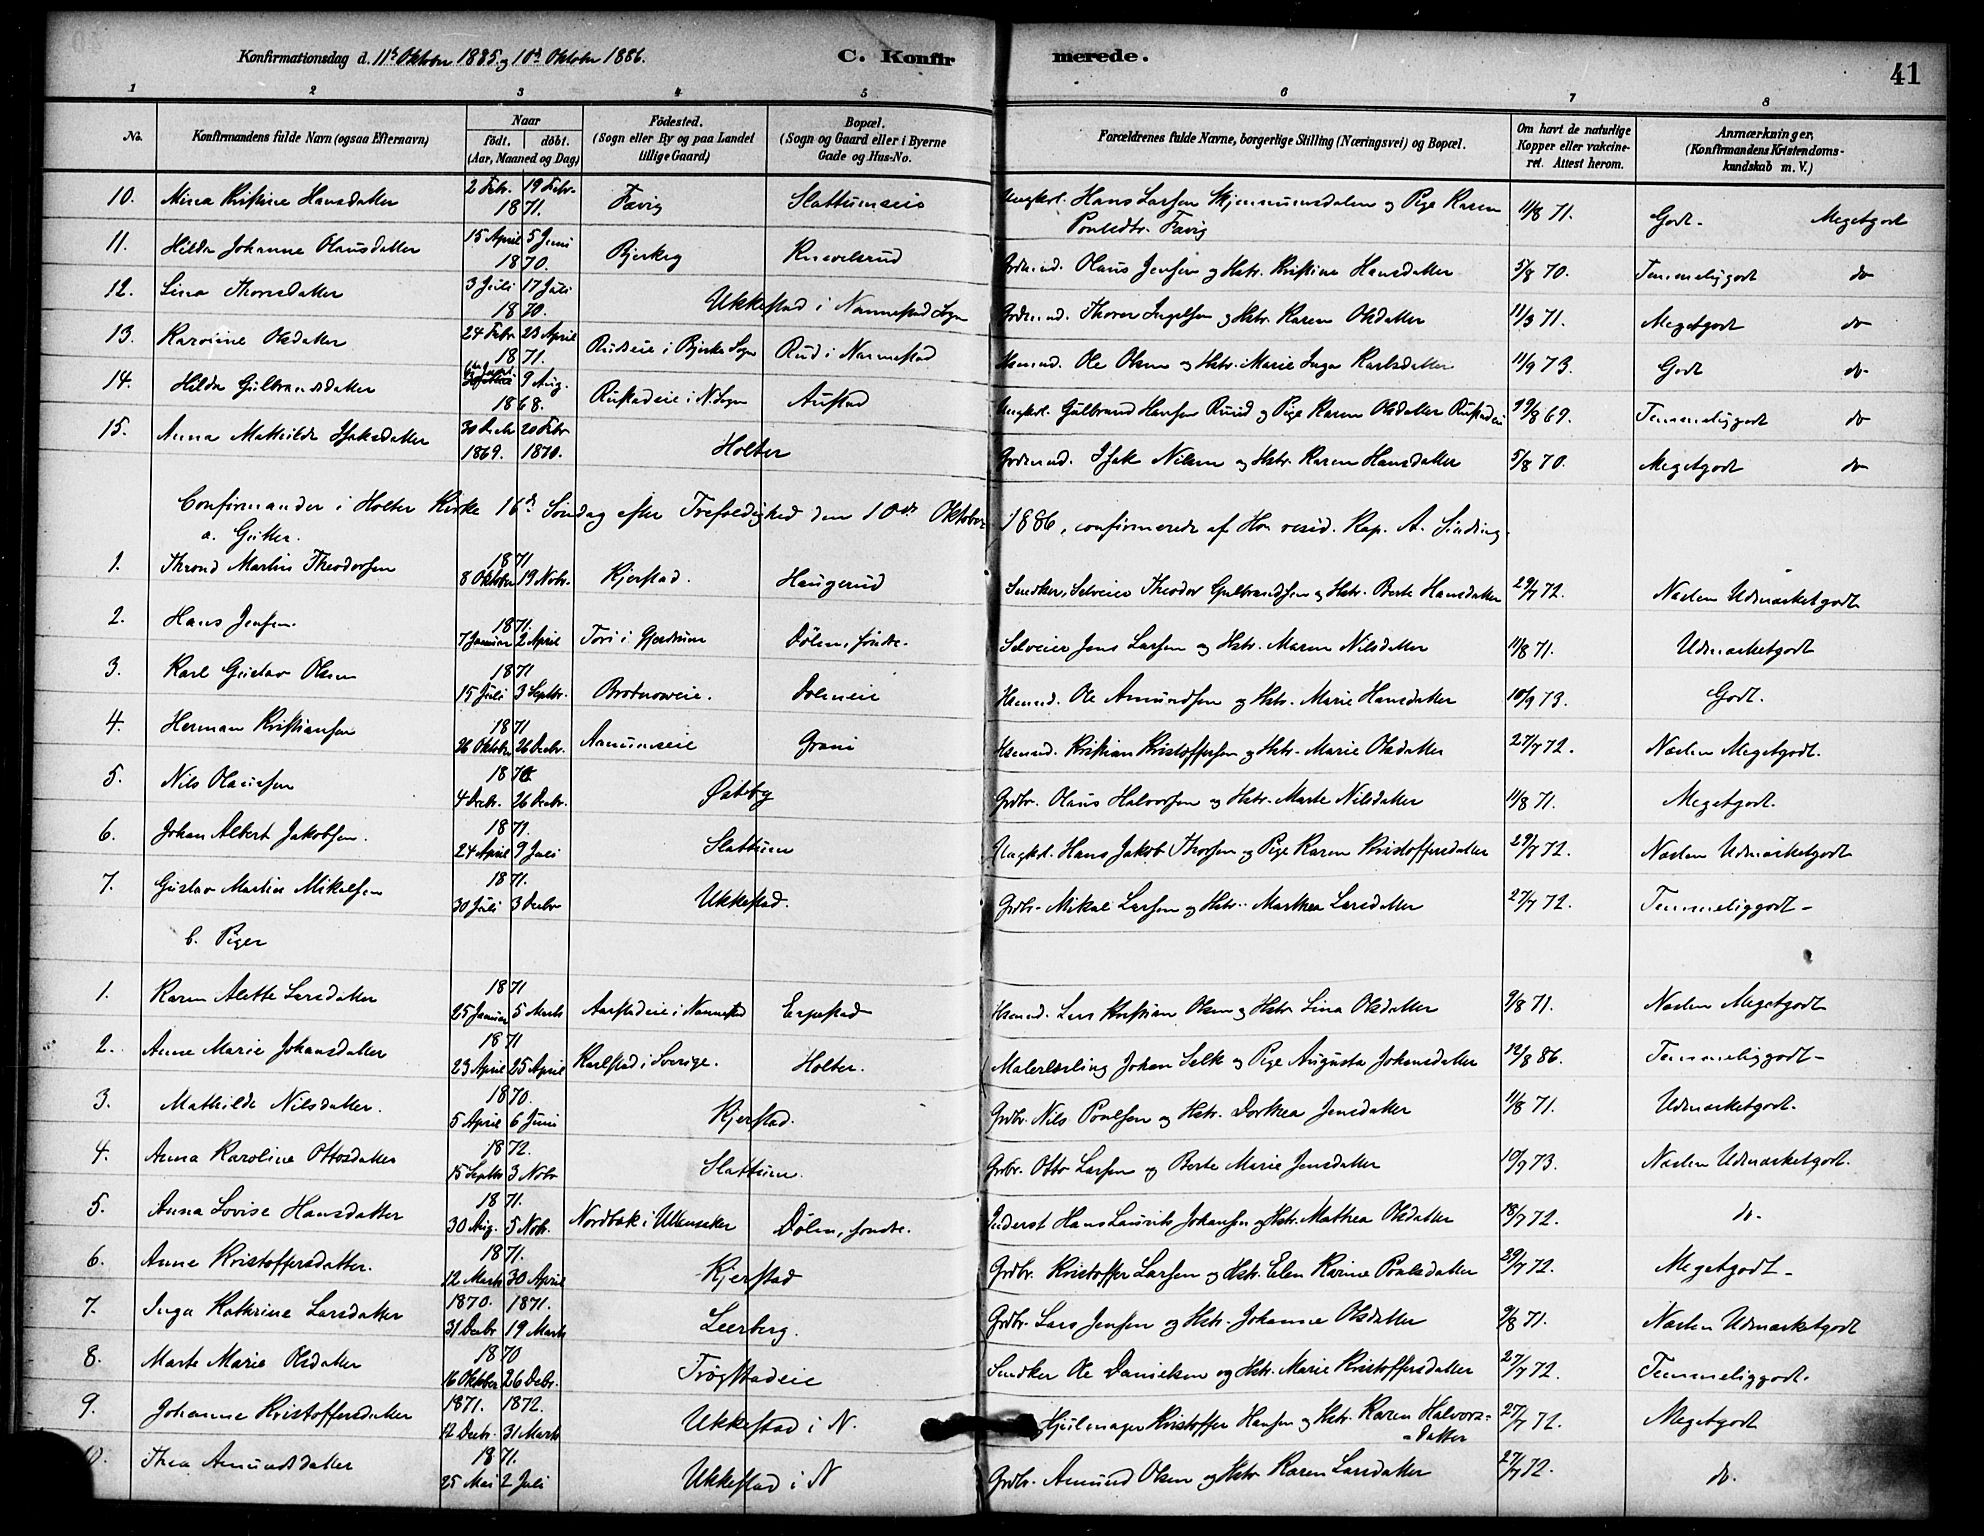 Konfirmationsdag d. 11te Oktober 1885 og 10de Oktober 1886.
C. Konfir merede.
41
1 2 3 4 5 6 7 8
No.
Konfirmandens fulde Navn (ogsaa Efternavn)
Naar
født. døbt.
(Aar, Maaned og Dag)
Fødested.
(Sogn eller By og paa Landet
tillige Gaard)
Bopæl.
(Sogn og Gaard eller i Byerne
Gade og Hus-No.
Forældrenes fulde Navne, borgerlige Stilling (Næringsvei) og Bopæl.
Om havt de naturlige
Kopper eller vakcine-
ret. Attest herom.
Anmærkninger,
(Konfirmandens Kristendoms-
kundskab m. V.)
10. Mina Kristine Hansdatter 2 Febr. 19 Febr. 1871. Favig Slattumseie Ungkrl. Hans Larsen Skjennumsdalen og Pige Karen 11/8 71. Godt. Megetgodt
Poulsdtr. Favig
11. Hilda Johanne Olausdatter 15 April 5 Juni 1870. Bjerkeg Grdmd. Olaus Jensen og Hstr. Kristine Hansdatter 5/8 70. Temmeliggodt do
12. Lina Thorsdatter 3 Juli 17 Juli 1870. Ukkestad i Nannestad Sogn Grdmd. Thorer Ingelsen og Hstr. Karen Olsdatter 11/3 71. Megetgodt do
13. Karoline Olsdatter 24 Febr 23 April 1871. Rudseie i Bjerke Sogn Rud i Nannestad Hsmd. Ole Olsen og Hstr. Marie Inga Karlsdatter 11/9 73. Godt do
14. Hilda Gulbrandsdatter 9 Aug. 1868. Rustadeie i N. Sogn Austad Ungkrl. Gulbrand Hansen Ruud og Pige Karen Olsdatter Rustadeie 19/8 69. Temmeliggodt do
15. Anna Mathilde Isaksdatter 30 Decbr 20 Febr 1869. 1870. Holter Grdmd. Isak Nilsen og Hstr. Karen Hansdatter 5/8 70. Megetgodt do
Confirmander i Holter Kirke 16de Søndag efter Trefoldighed den 10de Oktober 1886, confirmerede af Hr. resid. Kap. A. Sinding.
a. Gutter.
1. Thrond Martin Theodorsen 1871 8 Oktober 19 Novbr. Kjerstad. Haugerud Snedker, Selveier Theodor Gulbrandsen og Hstr. Berte Hansdatter 29/7 72. Næsten Udmærketgodt
2. Hans Jensen. 1871. 7 Januar 2 April Tori i Gjerdrum Dølen, søndre. Selveier Jens Larsen og Hstr. Maren Nilsdatter 11/8 71. Udmærketgodt
3. Karl Gustav Olsen 1871 15 Juli 3 Septbr. Brotnoweie. Døleneie Hsmd. Ole Amundsen og Hstr. Marie Hansdatter 10/9 73. Godt.
4. Herman Kristiansen 1871 26 Oktober 26 Decbr. Aamumseie Grani Hsmd. Kristian Kristoffersen og Hstr. Marie Olsdatter 27/7 72. Næsten Megetgodt.
5. Nils Olausen 1870 4 Decbr. 26 Decbr. Østby Grdbr. Olaus Halvorsen og Hstr. Marte Nilsdatter 11/8 71. Megetgodt.
6. Johan Albert Jakobsen. 1871. 24 April 9 Juli Slattum Ungkrl. Hans Jakob Thorsen og Pige Karen Kristoffersdatter 29/7 72. Næsten Udmærketgodt
7. Gustav Martin Mikalsen 1871. 30 Juli 3 Decbr Ukkestad. Grdbr. Mikal Larsen og Hstr. Marthea Larsdatter 27/7 72. Temmeliggodt
b. Piger
1. Karen Alette Larsdatter 1871 25 Januar 5 Marts Aarstadeie i Nannestad Erpestad Hsmd. Lars Kristian Olsen og Hstr. Lina Olsdatter 9/8 71. Næsten Megetgodt
2. Anne Marie Johansdatter 1871 23 April 25 April Karlstad i Sverige. Holter. Malerlærling Johan Salk og Pige Augusta Johansdatter 12/8 86. Temmeliggodt
3. Mathilde Nilsdatter. 1870. 5 April 6 Juni Kjerstad. Grdbr. Nils Poulsen og Hstr. Dorthea Jensdatter 11/8 71. Udmærketgodt.
4. Anna Karoline Ottosdatter 1872. 15 Septbr 3 Novbr Slattum. Grdbr. Otto Larsen og Berte Marie Jensdatter 10/9 73. Næsten Udmærketgodt.
5. Anna Lovise Hansdatter 1871. 30 Aug. 5 Novbr. Nordbak i Ullensaker Dølen, søndre. Inderst Hans Laurits Johansen og Hstr. Mathea Olsdatter 18/7 72. do.
6. Anne Kristoffersdatter. 1871. 12 Marts 30 April Kjerstad Grdbr. Kristoffer Larsen og Hstr. Elen Karine Poulsdatter 29/7 72. Megetgodt
7. Inga Kathrine Larsdatter 1870. 1871. 31 Decbr 19 Marts Leerberg. Grdbr. Lars Jensen og Hstr. Johanne Olsdatter 9/8 71. Næsten Udmærketgodt
8. Marte Marie Olsdatter 1870 16 Oktober 26 Decbr. Trøgstadeie Snedker Ole Danielsen og Hstr. Marie Kristoffersdatter 27/7 72. Temmeliggodt.
9. Johanne Kristoffersdatter 1871. 1872. 12 Decbr. 31 Marts Ukkestad i N. Hjulmager Kristoffer Hansen og Hstr. Karen Halvors= 27/7 72. Megetgodt
=datter
Thea Amundsdatter 1871. 25 Mai 2 Juli Ukkestad i N Grdbr. Amund Olsen og Hstr. Karen Larsdatter 27/7 72. do.